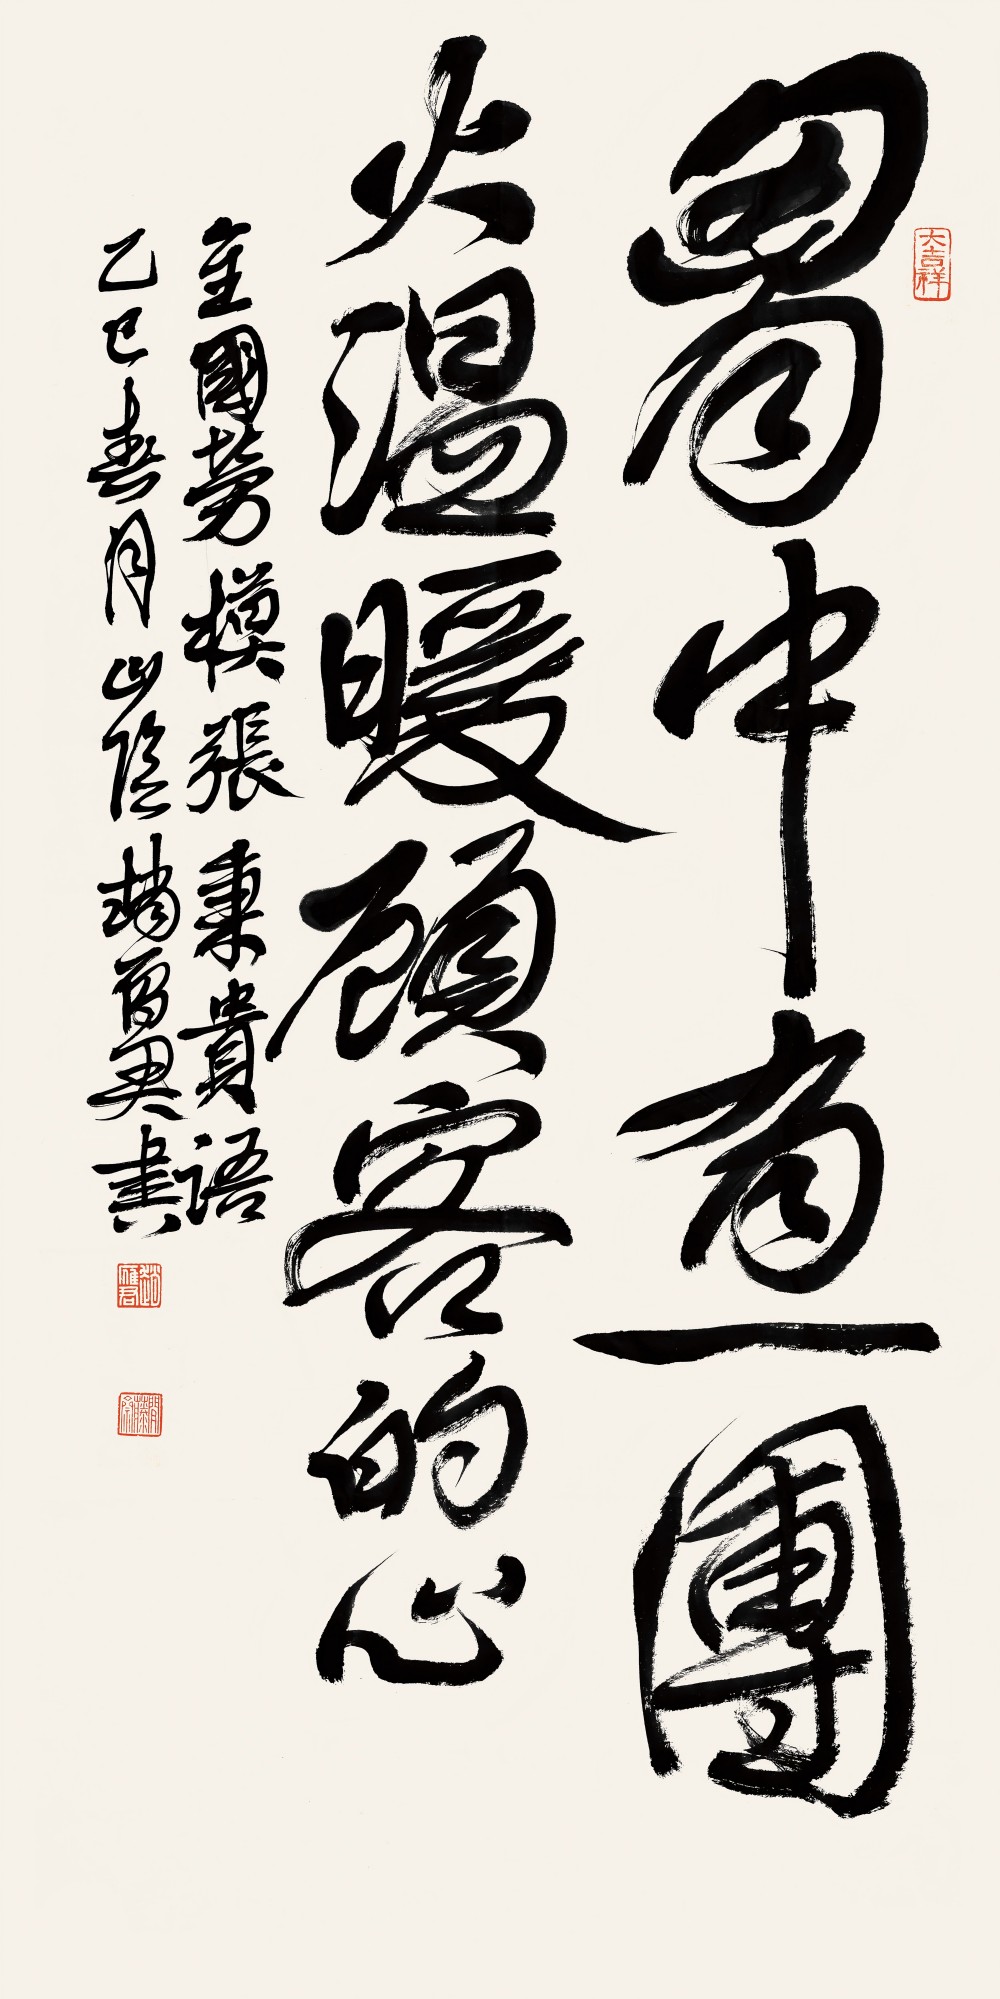 大吉祥
胷中有一團
火温暖顧客的心
全國勞模張秉貴語
乙巳春月山陰趙雁君書
趙雁君